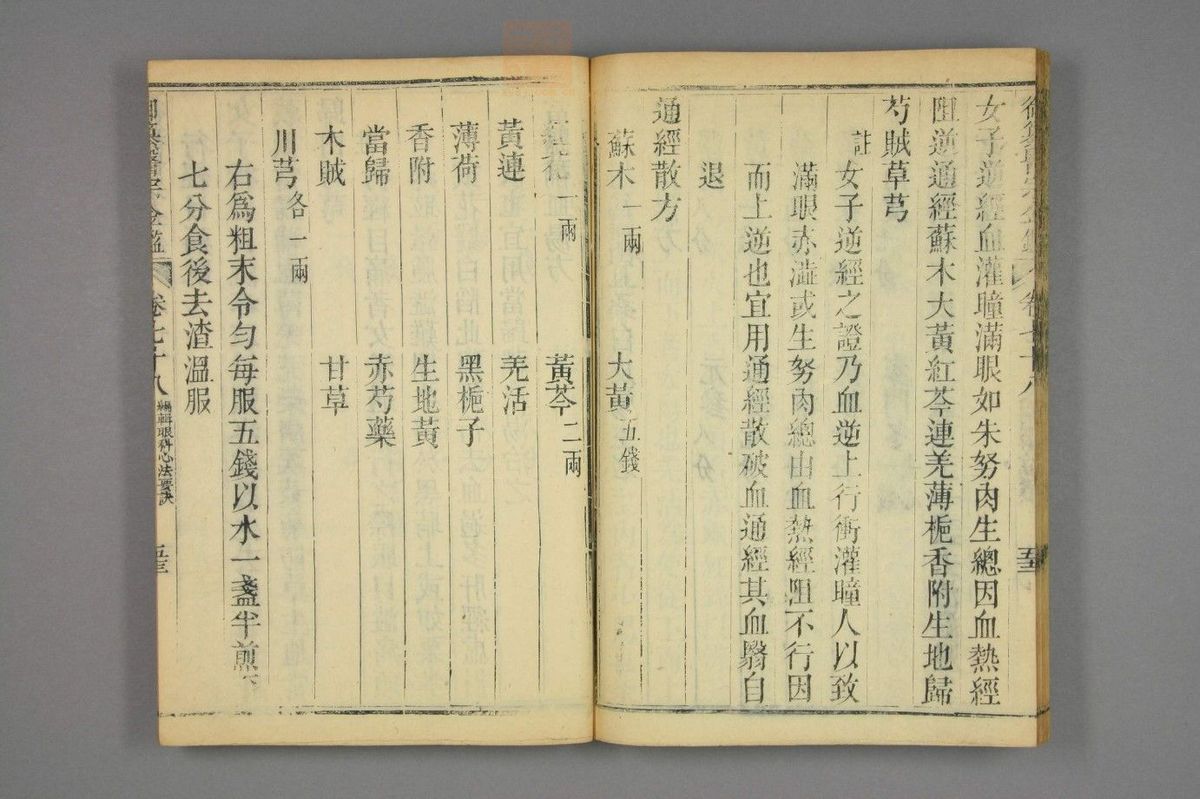 卷七十八
女子逆經血灌瞳滿眼如朱努肉生總因血熱經
阻逆通經蘇木大黃紅芩連羌薄梔香附生地歸
芍賊草芎
註 女子逆經之證乃血逆上行衝灌瞳人以致
滿眼赤澁或生努肉總由血熱經阻不行因
而上逆也宜用通經散破血通經其血翳自
退
通經散方
蘇木一兩 大黃五錢
兩 黃芩二兩
黃連 羌活
薄荷 黑梔子
香附 生地黃
當歸 赤芍藥
木賊 甘草
川芎各一兩
右爲粗末令勻每服五錢以水一盞半煎
七分食後去渣溫服
御纂醫宗金鑑 卷七十八 編輯眼科心法要訣 五三